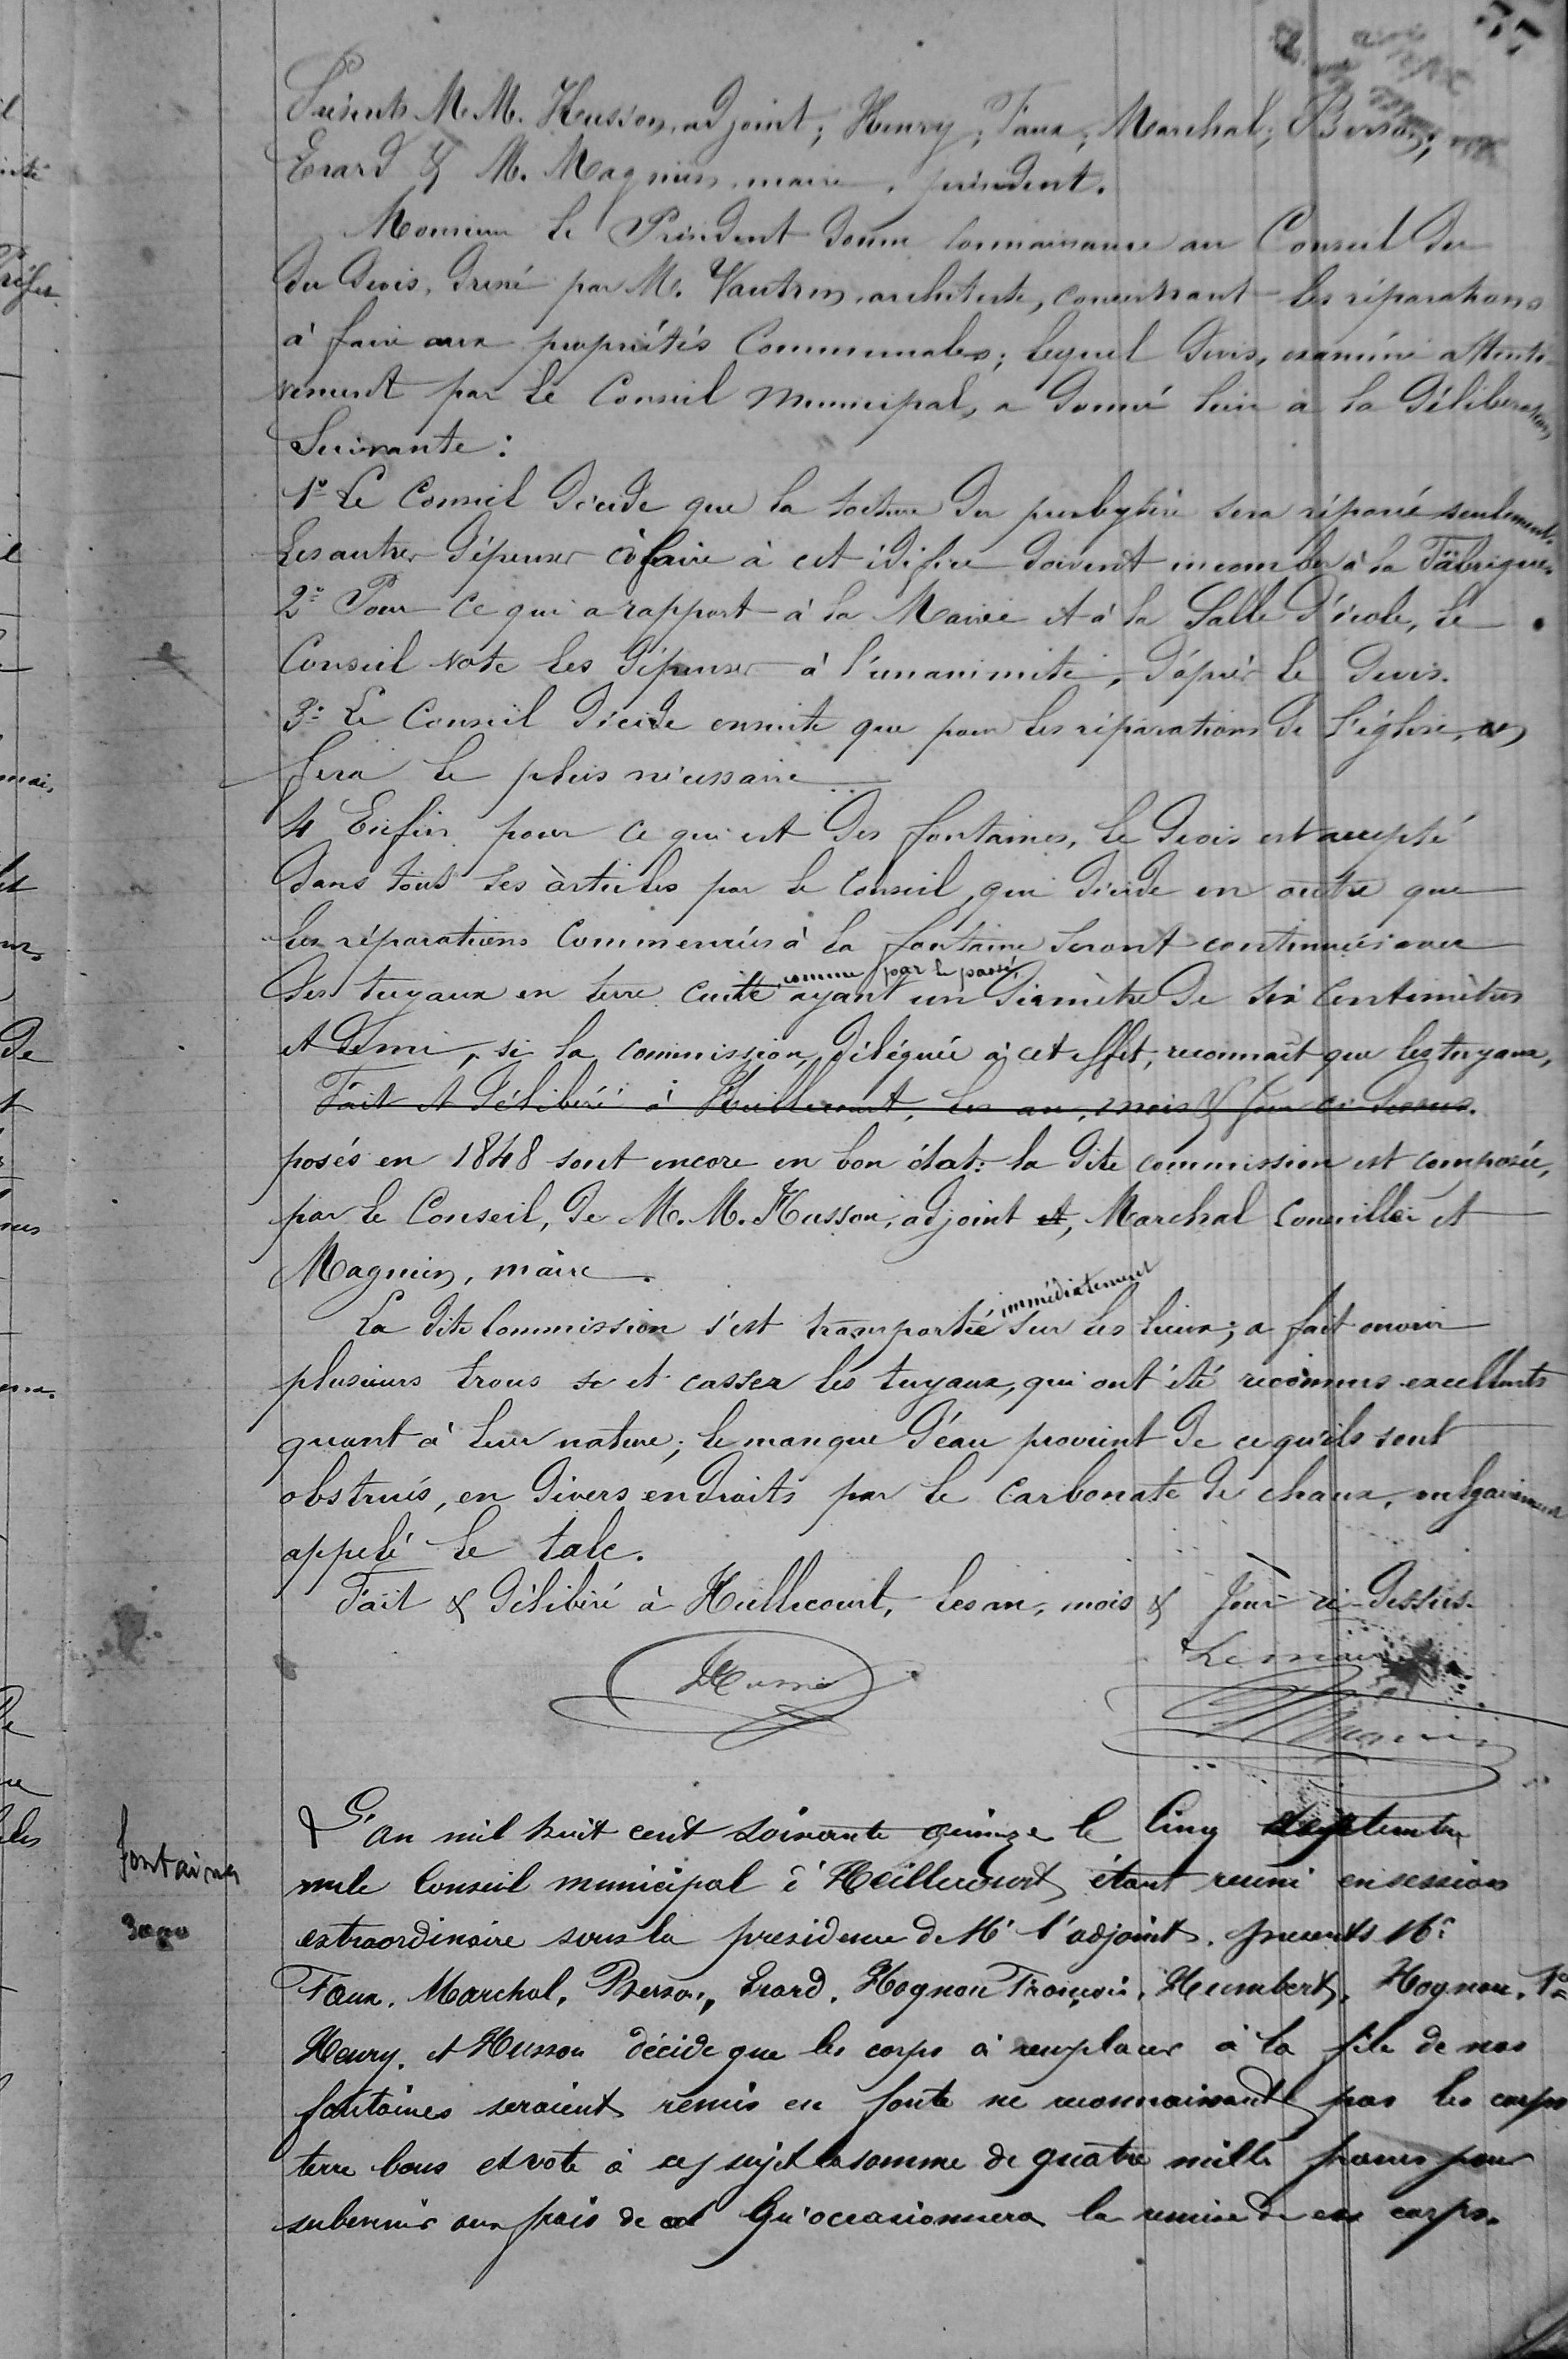 Présents M.M. Husson, adjoint; Henry; Faux; Marchal; Berson;
Erard & M. Magnien, maire, président.
Monsieur le Président donne connaissance au Conseil du
du devis, dressé par M. Vautrin, architecte, concernant les réparations
à faire aux propriétés Communales; lequel devis, examiné attenti-
vement par le Conseil municipal, a donné lieu à la délibération
Suivante:
1º Le Conseil décide que la toiture du presbytère sera réparée seulement.
Les autres dépenses à faire à cet édifice doivent incomber à la Fabrique.
2º Pour ce qui a rapport à la Mairie et à la Salle d'école, le
Conseil vote les dépenses à l'unanimité, d'après le devis.
3º Le Conseil décide ensuite que pour les réparations de l'église, on
fera le plus nécessaire
4 Enfin pour ce qui est des fontaines, le devis est accepté
dans tous ses articles par le Conseil, qui décide en outre que
les réparations commencées à la fontaine seront continuées avec
comme par le passé,
des tuyaux en terre cuite ayant un diamètre de six centimètres
et demi, si la commission, déléguée à cet effet, reconnaît que les tuyaux,
Fait et délibéré à Heillecourt, les an, mois & jour ci-dessus.
posés en 1848 sont encore en bon état: la dite commission est composée,
par le Conseil, de M.M. Husson, adjoint et, Marchal Conseiller et
Magnien, maire.
immédiatement
La dite Commission s'est transportée sur les lieux; a fait ouvrir
plusieurs trous se et casser les tuyaux, qui ont été reconnus excellents
quant à leur nature; le manque d'eau provient de ce qu'ils sont
obstrués, en divers endroits par le carbonate de chaux, vulgairement
appelé le talc.
Fait & délibéré à Heillecourt, les an, mois & Jour ci-dessus.
Le maire
Husson
Magnien
L'an mil huit cent soixante quinze le cinq septembre
le Conseil municipal d'Heillecourt étant reuni en session
extraordinaire sous la presidence de Mr l'adjoint. presents Mr
Faux. Marchal, Berson, Erard. Hognon François. Humbert. Hognon. 
Henry. et Husson décide que les corps à remplacer à la file de nos
fontaines seraient remis en fonte ne reconnaissant pas les corps
terre bons et vote à ce sujet la somme de quatre mille francs pour
subvenir aux frais de Qu'occasionnera la remise de ces corps.
fontaines